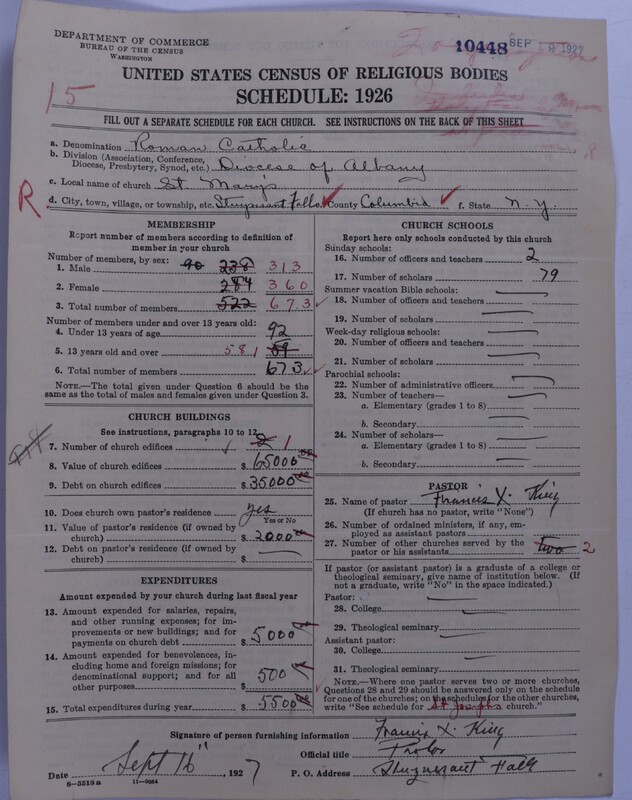 DEPARTMENT OF COMMERCE
BUREAU OF THE CENSUS
WASHINGTON
10448 SEP 9 1927
UNITED STATES CENSUS OF RELIGIOUS BODIES
SCHEDULE: 1926
15
FILL OUT A SEPARATE SCHEDULE FOR EACH CHURCH. SEE INSTRUCTIONS ON THE BACK OF THIS SHEET
a. Denomination Roman Catholic
b. Division (Association, Conference, Diocese, Presbytery, Synod, etc.) Diocese of Albany
c. Local name of church St. Mary's
R
d. City, town, village, or township, etc. Stuyvesant Falls County Columbia f. State N.Y.
MEMBERSHIP
Report number of members according to definition of
member in your church
Number of members, by sex:
1. Male 90 238 313
2. Female 284 360
3. Total number of members 522 673
Number of members under and over 13 years old:
4. Under 13 years of age 92
5. 13 years old and over 581
6. Total number of members 673
NOTE.—The total given under Question 6 should be
same as the total of males and females given under Question 3.
CHURCH BUILDINGS
See instructions, paragraphs 10 to 12
7. Number of church edifices 2 1
8. Value of church edifices $ 65000
9. Debt on church edifices $ 35000
10. Does church own pastor's residence? yes
Yes or No
11. Value of pastor's residence (if owned by
church) $ 2000
12. Debt on pastor's residence (if owned by
church) $
EXPENDITURES
Amount expended by your church during last fiscal year
13. Amount expended for salaries, repairs,
and other running expenses; for im-
provements or new buildings; and for
payments on church debt $ 5000
14. Amount expended for benevolences, including home and foreign missions; for
denominational support; and for all
other purposes $ 500
15. Total expenditures during year $ 5500
CHURCH SCHOOLS
Report here only schools conducted by this church
Sunday schools:
16. Number of officers and teachers 2
17. Number of scholars 79
Summer vacation Bible schools:
18. Number of officers and teachers
19. Number of scholars
Week-day religious schools:
20. Number of officers and teachers
21. Number of scholars
Parochial schools:
22. Number of administrative officers
23. Number of teachers—
a. Elementary (grades 1 to 8)
b. Secondary
24. Number of scholars—
a. Elementary (grades 1 to 8)
b. Secondary
PASTOR
25. Name of pastor Francis X. King
(If church has no pastor, write "None")
26. Number of ordained ministers, if any, em-
ployed as assistant pastors
27. Number of other churches served by the
pastor or his assistants two 2
If pastor (or assistant pastor) is a graduate of a college or
theological seminary, give name of institution below. (If
not a graduate, write "No" in the space indicated.)
Pastor:
28. College
29. Theological seminary
Assistant pastor:
30. College
31. Theological seminary
NOTE.—Where one pastor serves two or more churches,
Questions 28 and 29 should be answered only on the schedule
for one of the churches; on the schedules for the other churches,
write "See schedule for St Josephs church."
Signature of person furnishing information Francis X. King
Official title Pastor
Date Sept 16 1927 P. O. Address Stuyvesant Falls
8-5518a 11-9084